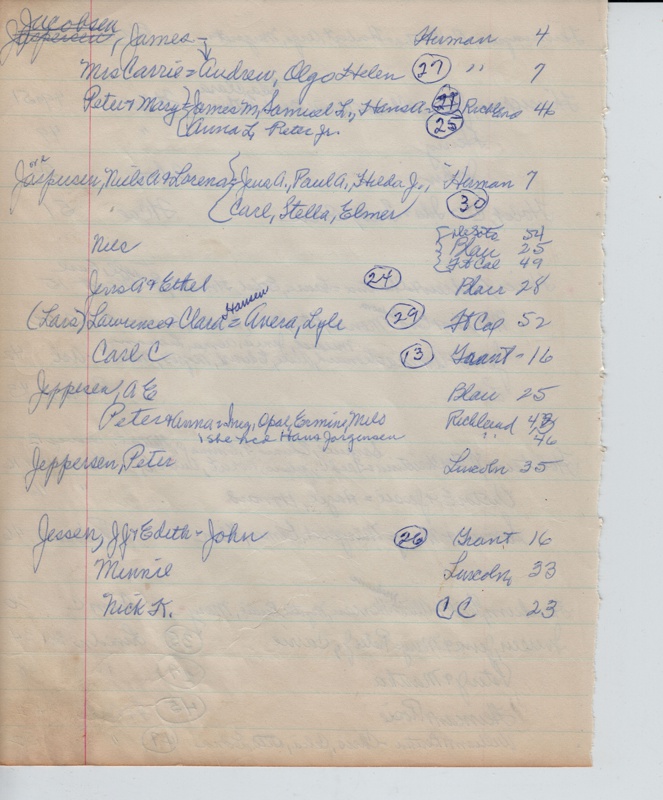 Jacobsen
Jepperson, James - Herman 4
Mrs Carrie = Andrew, Olga, Helen (27) " 7
Peter & Mary = James M, Samuel L., Hans A- 27 Richland 46
(Anna L, Peter Jr. (25)
or e
Jaspersen, Niels A & Lorena = { Jens A., Paul A., Hilda J., Herman 7
Carl, Stella, Elmer (30)
Nels { DeSoto 54
Blair 25
Ft Cal 49
Jens A & Ethel (24) Blair 28
Hansen
(Lars) Lawrence & Clara = Avera, Lyle (29) Ft Cal 52
Carl C (13) Grant - 16
Jeppesen, A E Blair 25
Peter & Anna = Inez, Opal, Ermine, Mils Richland 47
she nee Hans Jorgensen " 46
Jeppersen, Peter Lincoln 35
Jessen, J J & Edith - John (26) Grant 16
Minnie Lincoln 33
Nick K. CC 23